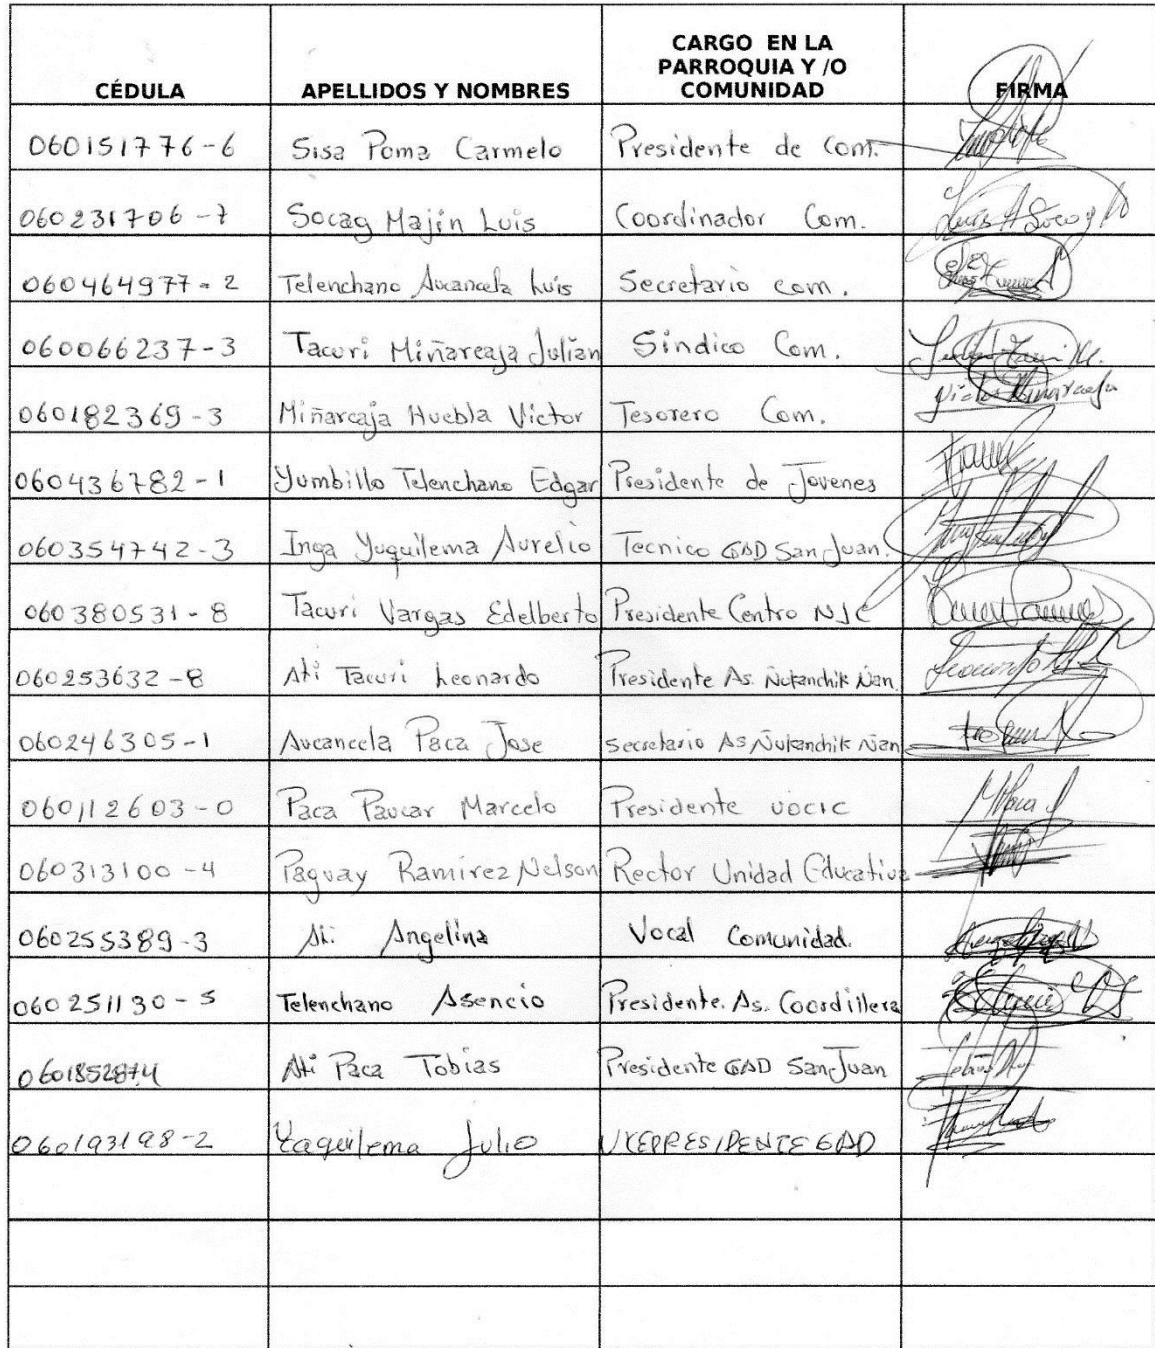 CÉDULA APELLIDOS Y NOMBRES CARGO EN LA PARROQUIA Y /O COMUNIDAD FIRMA
060151776-6 Sisa Poma Carmelo Presidente de Com.
060231706-7 Socag Majin Luis Coordinador Com. Luis A Socag
060464977-2 Telenchano Aucancela Luis Secretario com.
060066237-3 Tacuri Miñarcaja Julián Sindico Com.
060182369-3 Miñarcaja Huebla Victor Tesorero Com. Victor Miñarcaja
060436782-1 Yumbillo Telenchano Edgar Presidente de Jovenes
060354742-3 Inga Yuquilema Aurelio Tecnico GAD San Juan.
060380531-8 Tacuri Vargas Edelberto Presidente Centro NJC
060253632-8 Ati Tacuri Leonardo Presidente As. Ñukanchik Ñan.
060246305-1 Aucancela Paca Jose Secretario As Ñukanchik Ñan
060112603-0 Paca Paucar Marcelo Presidente UOCIC
060313100-4 Paguay Ramirez Nelson Rector Unidad Educativa
060255389-3 Ati Angelina Vocal Comunidad.
060251130-5 Telenchano Asencio Presidente. As. Coordillera
0601852874 Ati Paca Tobias Presidente GAD San Juan
060193198-2 Yaquilema Julio VICEPRESIDENTE GAD